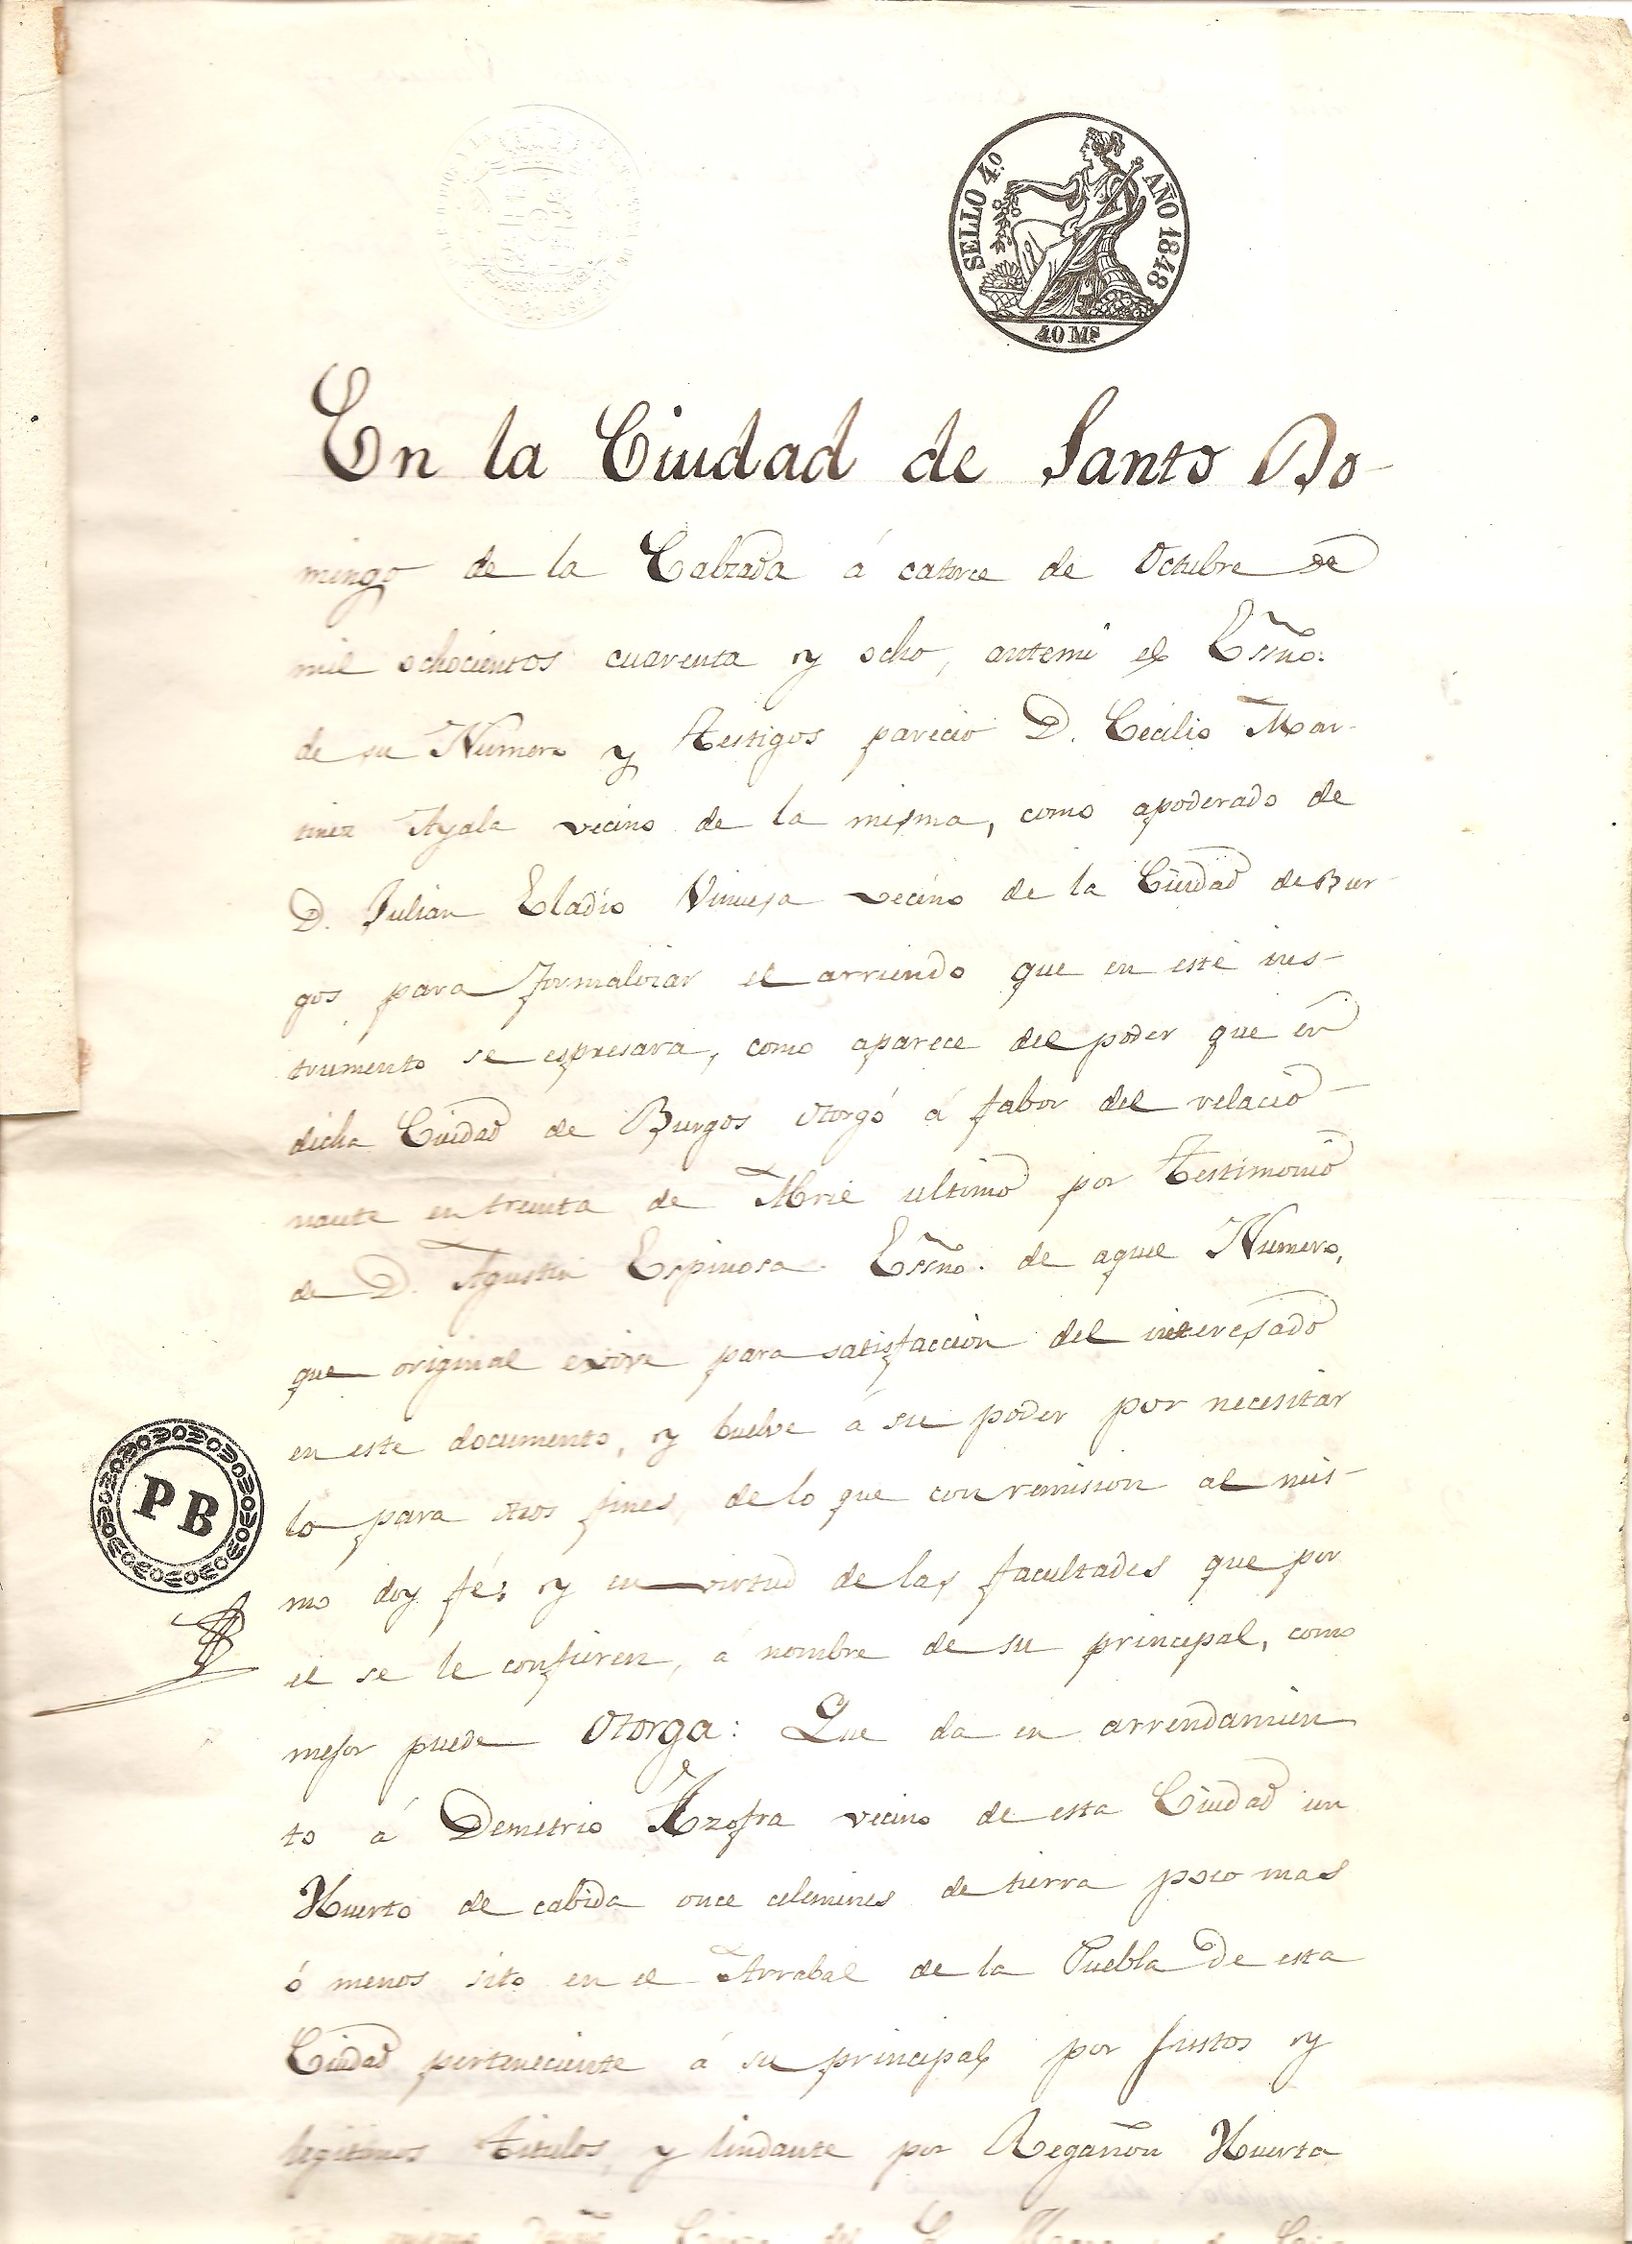 SELLO 4.º AÑO 1848
40 Ms
En la Ciudad de Santo Do-
mingo de la Calzada á catorce de Octubre de
mil ochocientos cuarenta y ocho, antemi el Essño.
de su Numero y Testigos parecio D. Cecilio Mar-
tinez Ayala vecino de la misma, como apoderado de
D. Julian Eladio Vinuesa vecino de la Ciudad de Bur-
gos para formalizar el arriendo que en este ins-
trumento se espresara, como aparece del poder que en
dicha Ciudad de Burgos otorgó á fabor del relacio-
nante en treinta de Abril ultimo por Testimonio
de D. Agustin Espinosa Essño. de aquel Numero,
que original exive para satisfaccion del interesado
en este documento, y buelve á su poder por necesitar
lo para otros fines, de lo que con remision al mis-
mo doy fé; y en virtud de las facultades que por
el se le confieren, á nombre de su principal, como
mejor puede Otorga: Que da en arrendamien
to á Demetrio Azofra vecino de esta Ciudad un
Huerto de cabida once celemines de tierra poco mas
ó menos sito en el Arrabal de la Puebla de esta
Ciudad perteneciente á su principal por justos y
legitimos titulos, y lindante por Regañon Huerta
PB